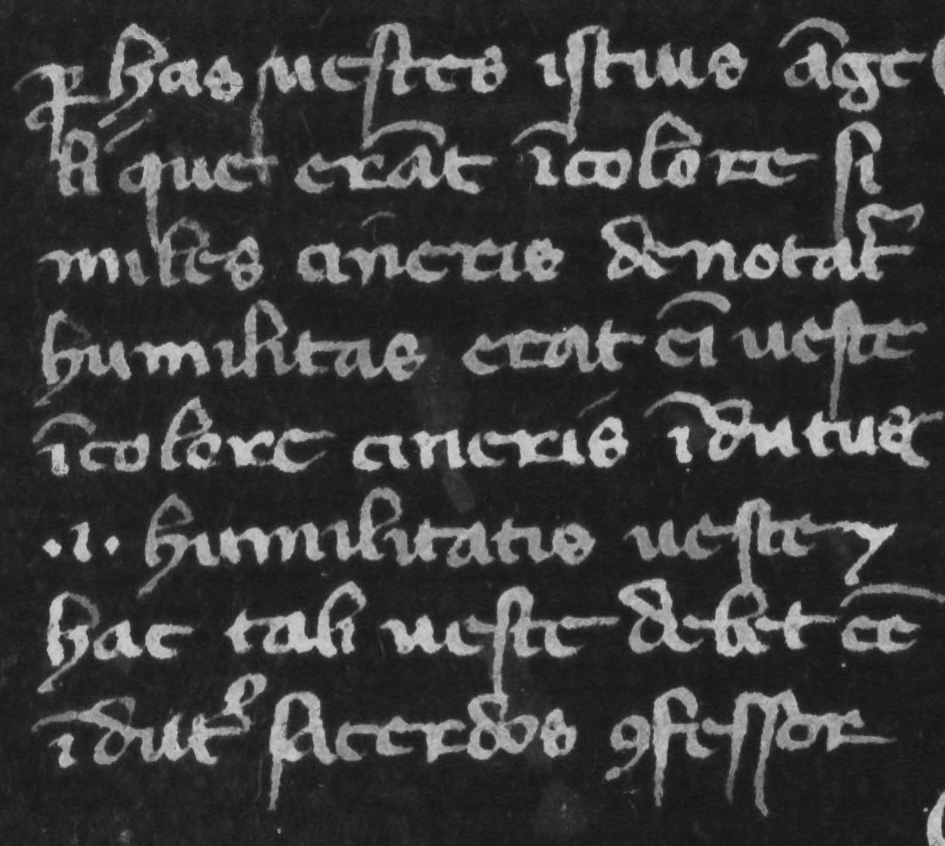 ꝑ has uestes istius āge
li que erāt ī colore si
miles cineris denotat᷑
humilitas erat ei̅ ueste
ī colore cineris īdutus
.i. humilitatis ueste ⁊
hac tali ueste debet ee̅
īdutꝰ sacerdos ꝯfessor